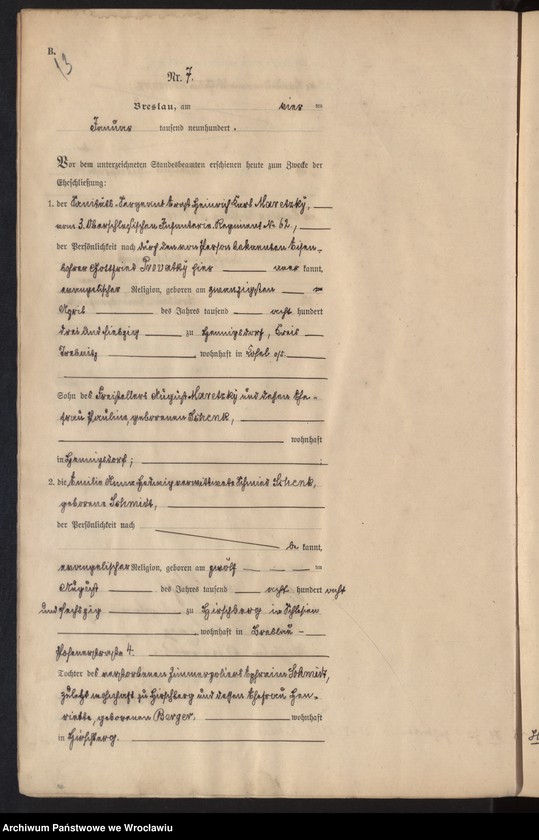 B.
13
Nr. 7.
Breslau, am vier ten
Januar tausend neunhundert.
Vor dem unterzeichneten Standesbeamten erschienen heute zum Zwecke der
Eheschließung:
1. der Sanitäts-Sergeant Ernst Heinrich Karl Maretzky,
vom 3. Oberschlesischen Infanterie-Regiment No 62,
der Persönlichkeit nach durch den von Person bekannten
Gottfried hier aner kannt,
evangelischer Religion, geboren am zwanzigsten
April des Jahres tausend acht hundert
drei und siebzig zu Hennigsdorf, Kreis
Trebnitz wohnhaft in Cosel o/s.
Sohn des Freistellers August Maretzky und dessen Ehe-
frau Pauline, geborenen Schenk,
wohnhaft
in Hennigsdorf;
2. die Emilie Anna Hedwig verwittwete Schmied Schenk,
geborene Schmidt,
der Persönlichkeit nach
be kannt,
evangelischer Religion, geboren am zwölf ten
August des Jahres tausend acht hundert acht
und sechszig zu Hirschberg in Schlesien
wohnhaft in Breslau
Posenerstraße 4.
Tochter des verstorbenen Zimmerpoliers Ephraim Schmidt,
zuletzt wohnhaft zu Hirschberg und dessen Ehefrau Hen-
riette, geborenen Berger. wohnhaft
in Hirschberg.
Archiwum Państwowe we Wrocławiu